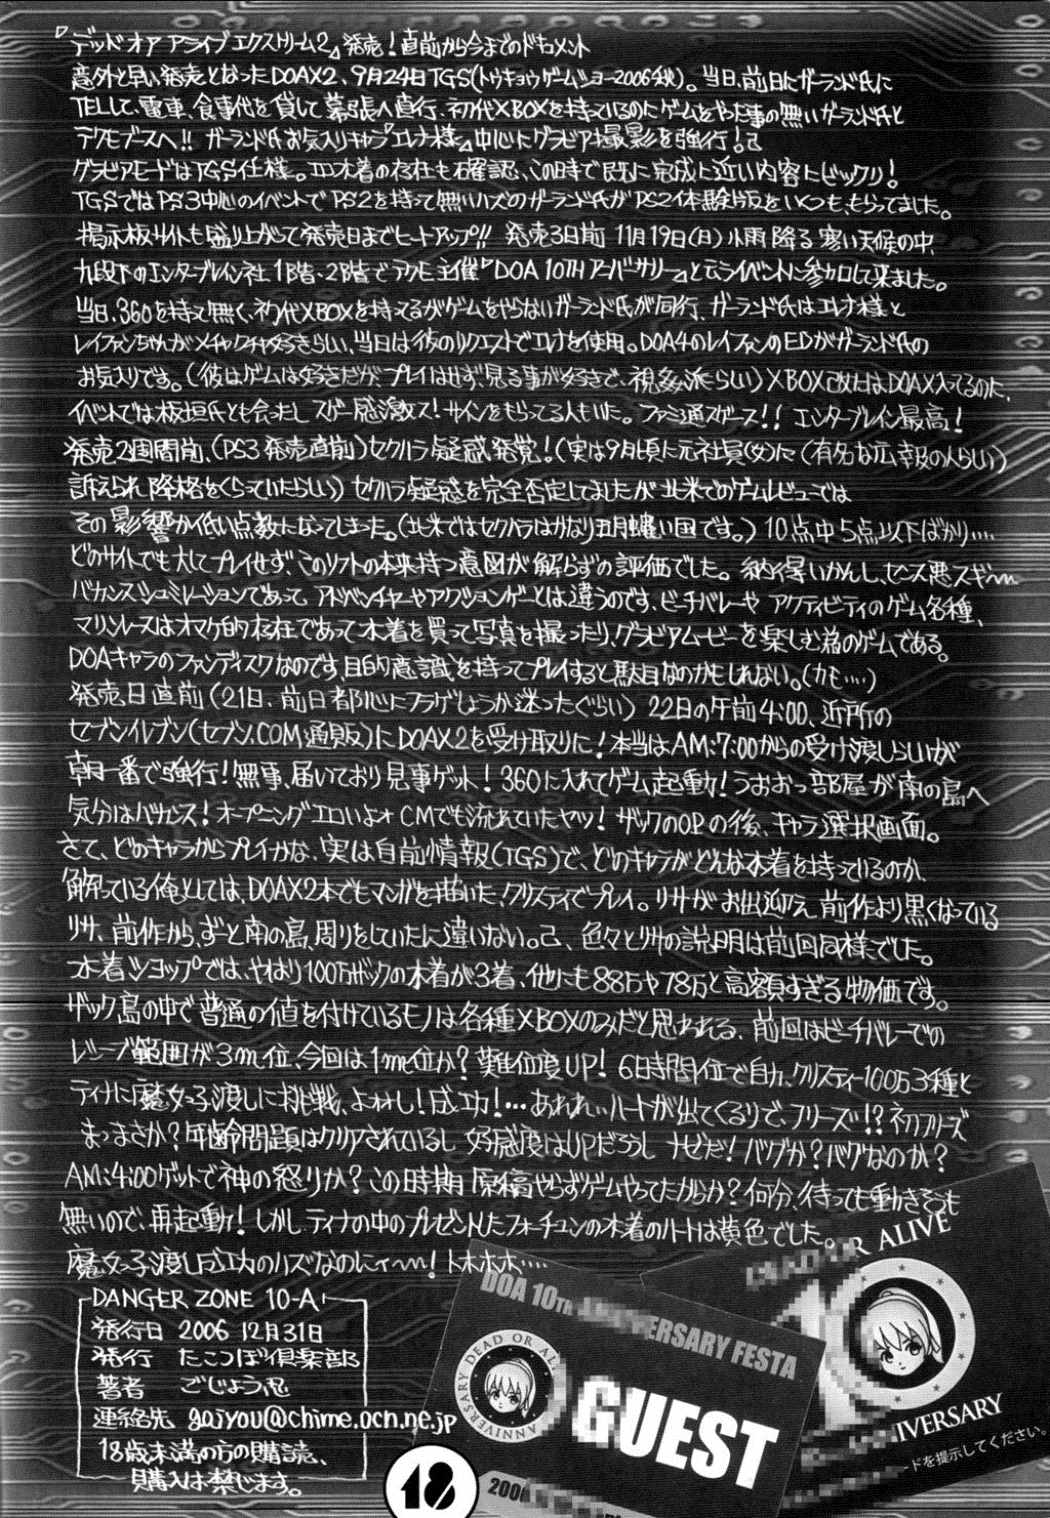 『デッドオア アライブエクストリーム2』発売!直前から今までのドキュメント
意外と早い発売となったDOAX2、9月24日TGS(トウキョウゲームショー2006秋)。当日、前日にガーランド氏に
TELして、電車、食事代を貸して幕張へ直行、初代XBOXを持っているのにゲームをやった事の無いガーランド氏と
テクモブースへ!! ガーランド氏お気入りキャラ『エレナ様』中心にグラビア撮影を強行!
グラビアモードはTGS仕様。エロ水着の存在も確認、この時で既に完成に近い内容にビックリ!
TGSではPS3中心のイベントでPS2を持って無いハズのガーランド氏がPS2体験版をいくつも、もらってました。
掲示板サイトも盛り上がって発売日までヒートアップ!! 発売3日前 11月19日(日)小雨降る寒い天候の中、
九段下のエンターブレイン社 1B階・2B階でテクモ主催『DOA 10THアニバーサリー』と云うイベントに参加して来ました。
当日、360を持って無く、初代XBOXを持ってるがゲームをやらないガーランド氏が同行、ガーランド氏はエレナ様と
レイファンちゃんがメチャクチャ好きらしい、当日は彼のリクエストでエレナを使用。DOA4のレイファンのEDがガーランド氏の
お気入りです。(彼はゲームは好きだが、プレイはせず、見る事が好きで、視姦派らしい)XBOX
イベントでは板垣氏とも会ったし スゲー感激ス!サインをもらってる人もいた。ファミ通スゲース!! エンターブレイン最高!
発売2週間前、(PS3発売直前)セクハラ疑惑発覚!(実は9月頃に元社員(女)に(有名な広報の人らしい)
訴えられ降格をくらっていたらしい)セクハラ疑惑を完全否定してましたが北米でのゲームレビューでは
その影響か低い点数になってしまった。(北米ではセクハラはかなり五月蠅い国です。)10点中5点以下ばかり‥‥
どのサイトでも大してプレイせず、このソフトの本来持つ意図が解らずの評価でした。納得いかんし、センス悪スギ〜
バカンスシュミレーションであって アドベンチャーやアクションゲーとは違うのです、ビーチバレーや アクティビティのゲーム各種、
マリンレースはオマケ的存在であって水着を買って写真を撮ったり、グラビアムービーを楽しむ為のゲームである。
DOAキャラのファンディスクなのです、目的意識を持ってプレイすると駄目なのかもしれない。(カモ‥‥)
発売日直前(21日、前日都心にフラゲしようか迷ったぐらい)22日の午前4:00、近所の
セブンイレブン(セブン.COM通販)にDOAX2を受け取りに!本当はAM:7:00からの受け渡しらしいが
朝一番で強行!無事、届いており見事ゲット!360に入れてゲーム起動!うおおっ部屋が南の島へ
気分はバカンス!オープニングエロいよォ CMでも流れていたヤツ!ザックのOPの後、キャラ選択画面。
さて、どのキャラからプレイかな、実は自前情報(TGS)で、どのキャラがどんな水着を持っているのか、
解っている俺としては、DOAX2本でもマンガを描いた、クリスティでプレイ。リサがお出迎え、前作より黒くなっている
リサ、前作から、ずと南の島、周りをしていたに違いない。色々とリサの説明は前回同様でした。
水着ショップでは、やはり100万ザックの水着が3着、他にも88万や78万と高額すぎる物価です。
ザック島の中で普通の値を付けているモノは各種XBOXのみだと思われる、前回はビーチバレーでの
レシーブ範囲が3m位、今回は1m位か?難位度UP!6時間位で自力、クリスティー100万3種と
ティナに魔女っ子渡しに挑戦、よォし!成功!…あれれぃハートが出てくるりで、フリーズ!?初フリーズ
まっまさか?年齢問題はクリアされているし 好感度はUPだろうし ナゼだ!バグか?バグなのか?
AM:4:00ゲットで神の怒りか?この時期 原稿やらずゲームやってたからか?何分、待っても動きそうも
無いので、再起動!しかしティナの中のプレゼントしたフォーチュンの水着のハートは黄色でした。
魔女っ子渡し成功のハズなのにィ〜!トホホホ‥‥
DANGER ZONE 10-A
発行日 2006 12月31日
発行 たこつぼ倶楽部
著者 ごじょう忍
連絡先 gojyou@chime.ocn.ne.jp
18歳未満の方の購読、
購入は禁じます。
DOA 10TH ANNIVERSARY FESTA
ANNIVERSARY DEAD OR ALIVE
GUEST
2006
DEAD OR ALIVE
ANNIVERSARY
ードを提示してください。
18